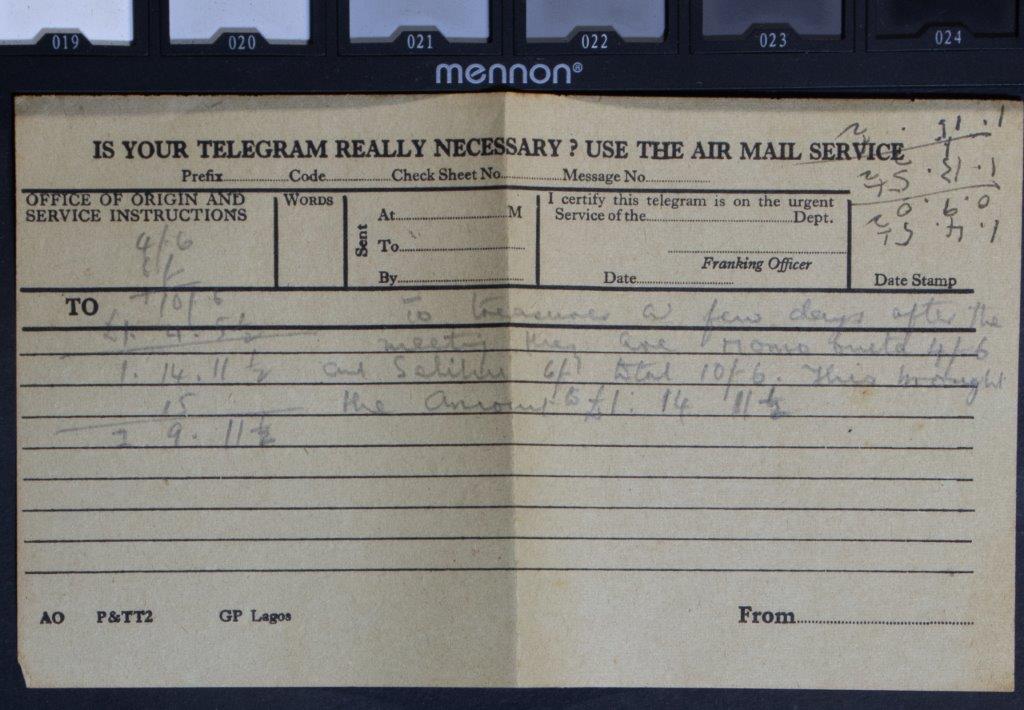 019 020 021 022 023 024
mennon®
IS YOUR TELEGRAM REALLY NECESSARY ? USE THE AIR MAIL SERVICE
Prefix Code Check Sheet No. Message No.
OFFICE OF ORIGIN AND
SERVICE INSTRUCTIONS
WORDS
Sent
At M
To
By
I certify this telegram is on the urgent
Service of the Dept.
Franking Officer
Date
Date Stamp
1 . 15 .
1 . 13 . 5
0 . 6 . 0
1 . 7 . 5
4/- 6
10/- 6
£1. 4. 5 ½
1. 14. 11 ½
15
2 9. 11 ½
TO
To treasurer a few days after the
meeting they are Momo 4/- 6
and Salihu 6/- total 10/- 6. This brought
the amount to £1: 14 11 ½
AO P&TT2 GP Lagos
From